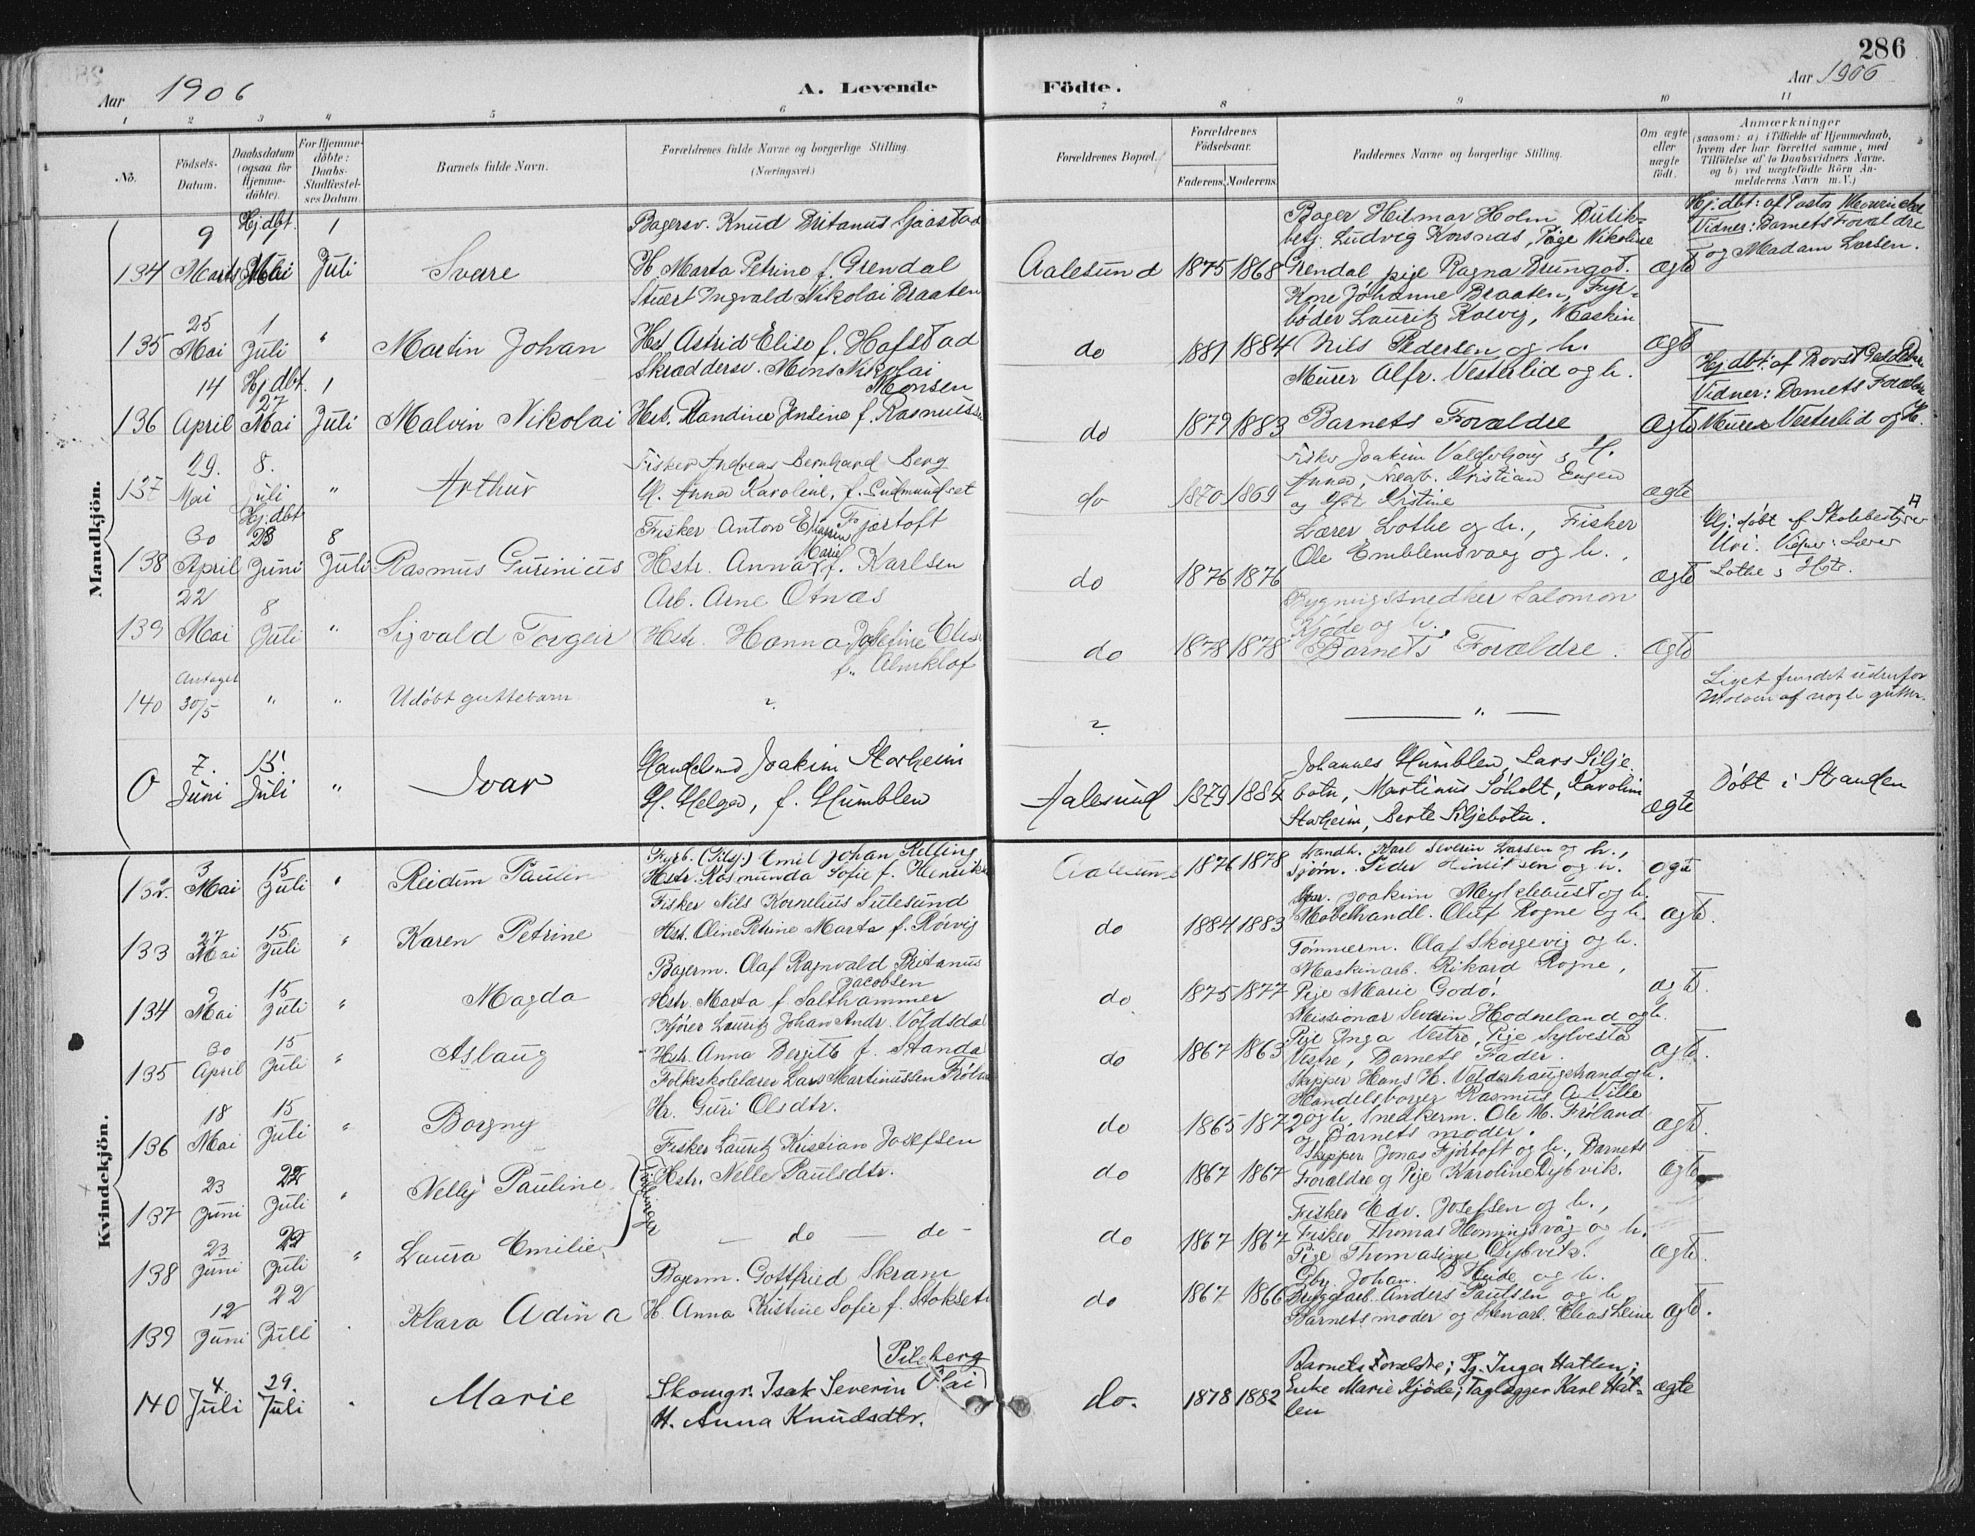 286
Aar 1906
A. Levende
Födte.
Aar 1906
1 2 3 4 5 6 7 8 9 10 11
No.
Födsels-Datum.
Daabsdatum (ogsaa for Hjemme-döbte).
For Hjemme-döbte: Daabs-Stadfæstel-ses Datum.
Barnets fulde Navn.
Forældrenes fulde Navne og borgerlige Stilling. (Næringsvei)
Forældrenes Bopæl.
Forældrenes Födselsaar.
Faderens. Moderens.
Faddernes Navne og borgerlige Stilling.
Om ægte eller uægte födt.
Anmærkninger
(saasom: a) i Tilfælde af Hjemmedaab,
hvem der har forrettet samme, med
Tilföielse af to Daabsvidners Navne.
og b) ved uægtefödte Börn An-
melderens Navn m. V.)
Mandkjön.
134
9 Marts
Hj.dbt. Mai
1 Juli
Svare
Bagersv. Knud Britanus Gaastad
H. Marta Petrine f. Grendal
Aalesund
1875 1868
Bager Hilmar Holm, Butik-
betj. Ludvig Korsnæs, Pige Nikoline
Grendal pige Ragna Brungot.
ægte
Hj.dbt: af Pastor
Vidner: Barnets Forældre
og Madam Larsen.
135
25 Mai
1 Juli
"
Martin Johan
Stuert Ingvald Nikolai Braaten
Hst. Astrid Elise f. Hofstad
do
1881 1884
Kone Johanne Braaten, Fyr-
böder Lauritz Kolvig, Maskin
Nils Pedersen og h.
ægte
136
14 April
Hj.dbt. 27 Mai
1 Juli
Malvin Nikolai
Skræddersv. Mons Nikolai
Monsen
Hst. Randine Jentine f. Rasmussen
do
1879 1883
Murer Alfr. Vesterlid og h.
Barnets Forældre
ægte
Hj.dbt: af
Vidner: Barnets Forældre
Murer Vesterlid og H.
137
29. Mai
8. Juli
"
Arthur
Fisker Andreas Bernhard Berg
H. Anna Karoline, f. Gudmundset
do
1870 1869
Fisker Joakim Valderhoug s H.
Anna, Kristian Eugen
og Kristine
ægte
138
30 April
Hj.dbt 23 Juni
8 Juli
Rasmus Gurinius
Fisker Anton Fjørtoft
Hstr. Anna Marie f. Karlsen
do
1876 1876
Lærer Lothe og h., Fisker
Ole Emblemsvaag og h.
ægte
Hj: døbt af Skolebestyrer
Uri. Vidner: Lærer
Lothe s Hstr.
139
22 Mai
8 Juli
"
Sigvald Torgeir
Arb. Arne Otnæs
Hstr. Hanna Josefine Elise
f. Almklof
do
1878 1878
Bygningssnedker Salomon
Kjöde og h.
Barnets Forældre.
ægte
140
Antaget 30/5
"
"
Udöbt guttebarn
?
?
"
Liget fundet udenfor
Moloen af nogle gutter.
0
7. Juni
15. Juli
"
Ivar
Handelsmd Joakim Storheim
H. Helga, f. Humblen
Aalesund
1879 1884
Johannes Humblen, Lars Silje-
botn, Martinus Søholt, Karoline
Storheim, Berte Siljebotn.
ægte
Døbt i Standen
Kvindekjön.
132.
3 Mai
15 Juli
"
Reidun Paulin
Fyrb. Emil Johan Relling
Hstr. Rosmunda Sofie f. Henriks
Aalesund
1876 1878
Handb. Karl Severin Larsen og h.,
Sjöm. Peder og h.
ægte
133
27 Mai
15 Juli
"
Karen Petrine
Fisker Nils Kornelius Sulesund
Hst. Oline Petrine Marta f. Rörvig
do
1884 1883
Joakim Myklebust og h.
Møbelhandl. Oluf Rogne og h.
Tömmerm. Olaf Skorgevig og h.
ægte.
134
2 Mai
15 Juli
"
Magda
Bagerm. Olaf Ragnvald Britanus
Jacobsen
Hstr. Marta f. Salthammer
do
1875 1877
Maskinarb. Rikard Rogne,
Pige Marie Godö.
Missionær Severin Hodneland og h.
ægte.
135
30 April
15 Juli
"
Aslaug
Kjörer Lauritz Johan Andr. Voldsdal
Hstr. Anna Bergitte f. Standal
do
1867 1863
Pige Inga Vestre, Pige Sylvesta
Vestre, Barnets Fader.
Skipper Hans H. Valderhaugstrand og h.
ægte.
136
18 Mai
15 Juli
"
Borgny
Folkeskolelærer Lars Martinussen
Hr. Guri Olsdtr.
do
1865 1872
Handelsborger Rasmus A Ville
og h., Snedkerm. Ole M. Fröland
og Barnets moder.
ægte.
137
23 Juni
22 Juli
"
Nelly Pauline
(Tvillinger
Fisker Lauritz Kristian Josefsen
Hstr. Nelle Paulsdtr.
do
1867 1867
Skipper Jonas Fjörtoft og h., Barnets
Forældre og Pige Karoline Dybvik.
ægte.
138
23 Juni
22 Juli
"
Laura Emilie
— do — do —
do
1867 1867
Fisker Edv. Josefsen og h.,
Fisker Thomas Honningsvåg og h.
Pige Thomasine Dybvik.
ægte.
139
12 Juni
22 Juli
"
Klara Adina
Bagerm. Gottfried Skram
H. Anna Kristine Sofie f. Stokset
do
1867 1866
Gbr. Johan B. Heide og h.
Bryggearb. Anders Paulsen og h
Barnets moder og Stenarb. Elias Leine
ægte.
140
4. Juli
29. Juli
"
Marie
Pileberg
Skomgr. Isak Severin Olai
H. Anna Knudsdtr.
do.
1878 1882
Barnets Forældre; Pg. Inga Hatlen;
Enke Marie Kjöde; Taglægger Karl Hat-
len
ægte